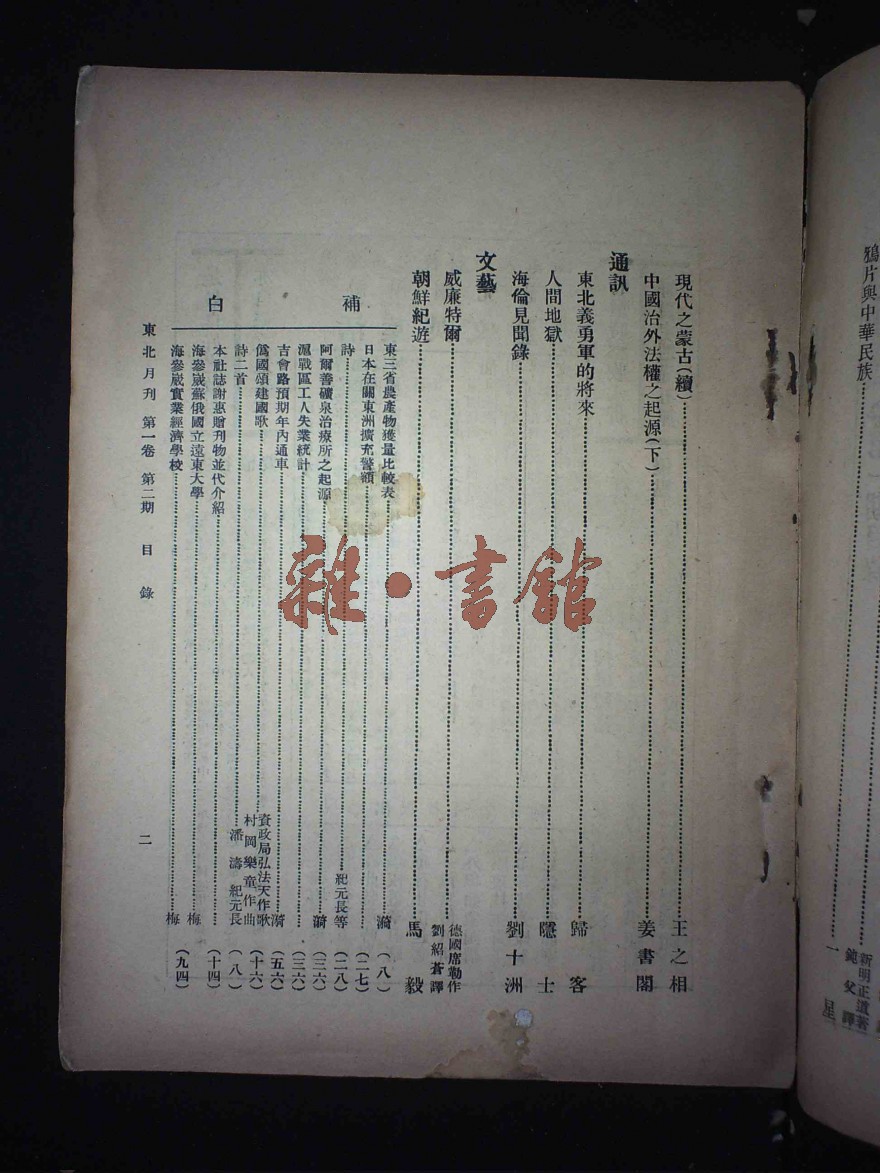 鴉片與中華民族……一星
新明正道著
鈍父譯
現代之蒙古(續)……王之相
中國治外法權之起源(下)……姜書閣
通訊
東北義勇軍的將來……歸客
人間地獄……隱士
海倫見聞錄……劉十洲
文藝
威廉特爾……德國席勒作 劉紹蒼譯
朝鮮紀遊……馬毅
補白
東三省農產物獲量比較表……漪(八)
日本在關東洲擴充警額……(二七)
詩……紀元長等(二八)
阿爾善礦泉治療所之起源……漪(三六)
滬戰區工人失業統計……(三六)
吉會路預期年內通車……漪(五六)
僞國頌建國歌……資政局弘法天作歌 村岡樂童作曲(十六)
詩二首……潘濤 紀元長(八)
本社誌謝惠贈刊物並代介紹……(十四)
海參崴蘇俄國立遠東大學……梅
海參崴實業經濟學校……梅(九四)
東北月刊 第一卷 第二期 目錄 二
雜·書館